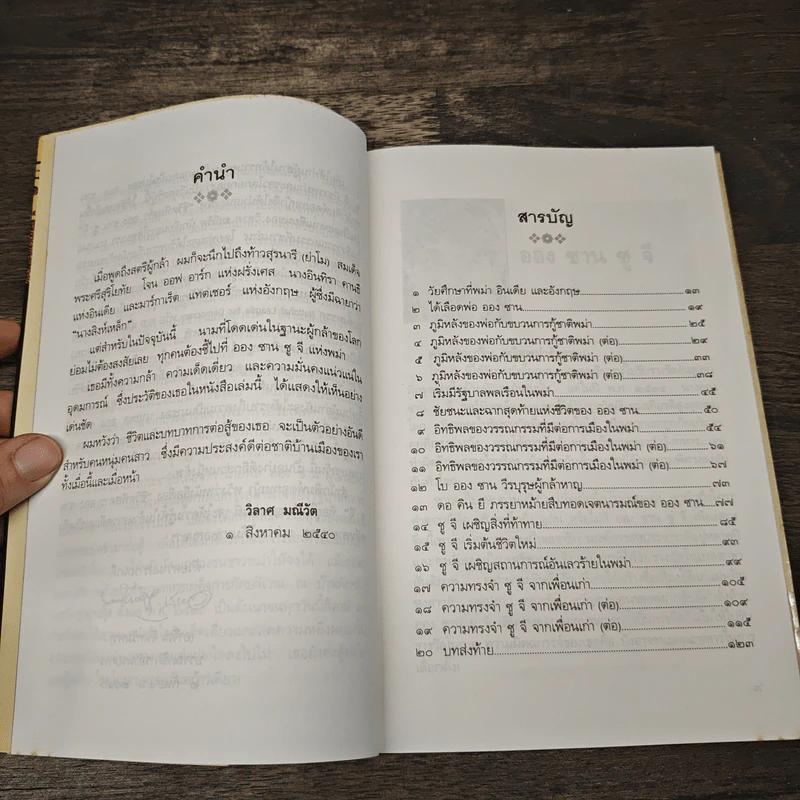 คำนำ
เมื่อพูดถึงสตรีผู้กล้า ผมก็จะนึกไปถึงท้าวสุรนารี (ย่าโม) สมเด็จ
พระศรีสุริโยทัย โจน ออฟ อาร์ก แห่งฝรั่งเศส นางอินทิรา คานธี
แห่งอินเดีย และมาร์กาเร็ต แทตเชอร์ แห่งอังกฤษ ผู้ซึ่งมีฉายาว่า
"นางสิงห์เหล็ก"
แต่สำหรับในปัจจุบันนี้ นามที่โดดเด่นในฐานะผู้กล้าของโลก
ย่อมไม่ต้องสงสัยเลย ทุกคนต้องชี้ไปที่ ออง ซาน ซู จี แห่งพม่า
เธอมีทั้งความกล้า ความเด็ดเดี่ยว และความมั่นคงแน่วแน่ใน
อุดมการณ์ ซึ่งประวัติของเธอในหนังสือเล่มนี้ ได้แสดงให้เห็นอย่าง
เด่นชัด
ผมหวังว่า ชีวิตและบทบาทการต่อสู้ของเธอ จะเป็นตัวอย่างอันดี
สำหรับคนหนุ่มคนสาว ซึ่งมีความประสงค์ดีต่อชาติบ้านเมืองของเรา
ทั้งเมื่อนี้และเมื่อหน้า
วิลาศ มณีวัต
๑ สิงหาคม ๒๕๔๐
สารบัญ
๑ วัยศึกษาที่พม่า อินเดีย และอังกฤษ...............๑๓
๒ ได้เลือดพ่อ ออง ซาน...............๑๙
๓ ภูมิหลังของพ่อกับขบวนการกู้ชาติพม่า...............๒๕
๔ ภูมิหลังของพ่อกับขบวนการกู้ชาติพม่า (ต่อ)...............๒๙
๕ ภูมิหลังของพ่อกับขบวนการกู้ชาติพม่า (ต่อ)...............๓๓
๖ ภูมิหลังของพ่อกับขบวนการกู้ชาติพม่า (ต่อ)...............๓๘
๗ เริ่มมีรัฐบาลพลเรือนในพม่า...............๔๕
๘ ชัยชนะและฉากสุดท้ายแห่งชีวิตของ ออง ซาน...............๕๐
๙ อิทธิพลของวรรณกรรมที่มีต่อการเมืองในพม่า...............๕๔
๑๐ อิทธิพลของวรรณกรรมที่มีต่อการเมืองในพม่า (ต่อ)...............๖๑
๑๑ อิทธิพลของวรรณกรรมที่มีต่อการเมืองในพม่า (ต่อ)...............๖๗
๑๒ โบ ออง ซาน วีรบุรุษผู้กล้าหาญ...............๗๓
๑๓ ดอ คิน ยี ภรรยาหม้ายสืบทอดเจตนารมณ์ของ ออง ซาน....๗๗
๑๔ ซู จี เผชิญสิ่งที่ท้าทาย...............๘๕
๑๕ ซู จี เริ่มต้นชีวิตใหม่...............๙๓
๑๖ ซู จี เผชิญสถานการณ์อันเลวร้ายในพม่า...............๙๙
๑๗ ความทรงจำ ซู จี จากเพื่อนเก่า...............๑๐๕
๑๘ ความทรงจำ ซู จี จากเพื่อนเก่า (ต่อ)...............๑๐๙
๑๙ ความทรงจำ ซู จี จากเพื่อนเก่า (ต่อ)...............๑๑๕
๒๐ บทส่งท้าย...............๑๒๓